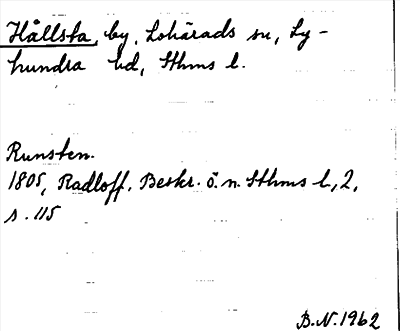 Hållsta, by, Lohärads sn, Ly-
hundra hd, Sthms l.
Runsten.
1805, Radloff, Beskr. ö. n. Sthms l., 2,
s. 115
B.N. 1962